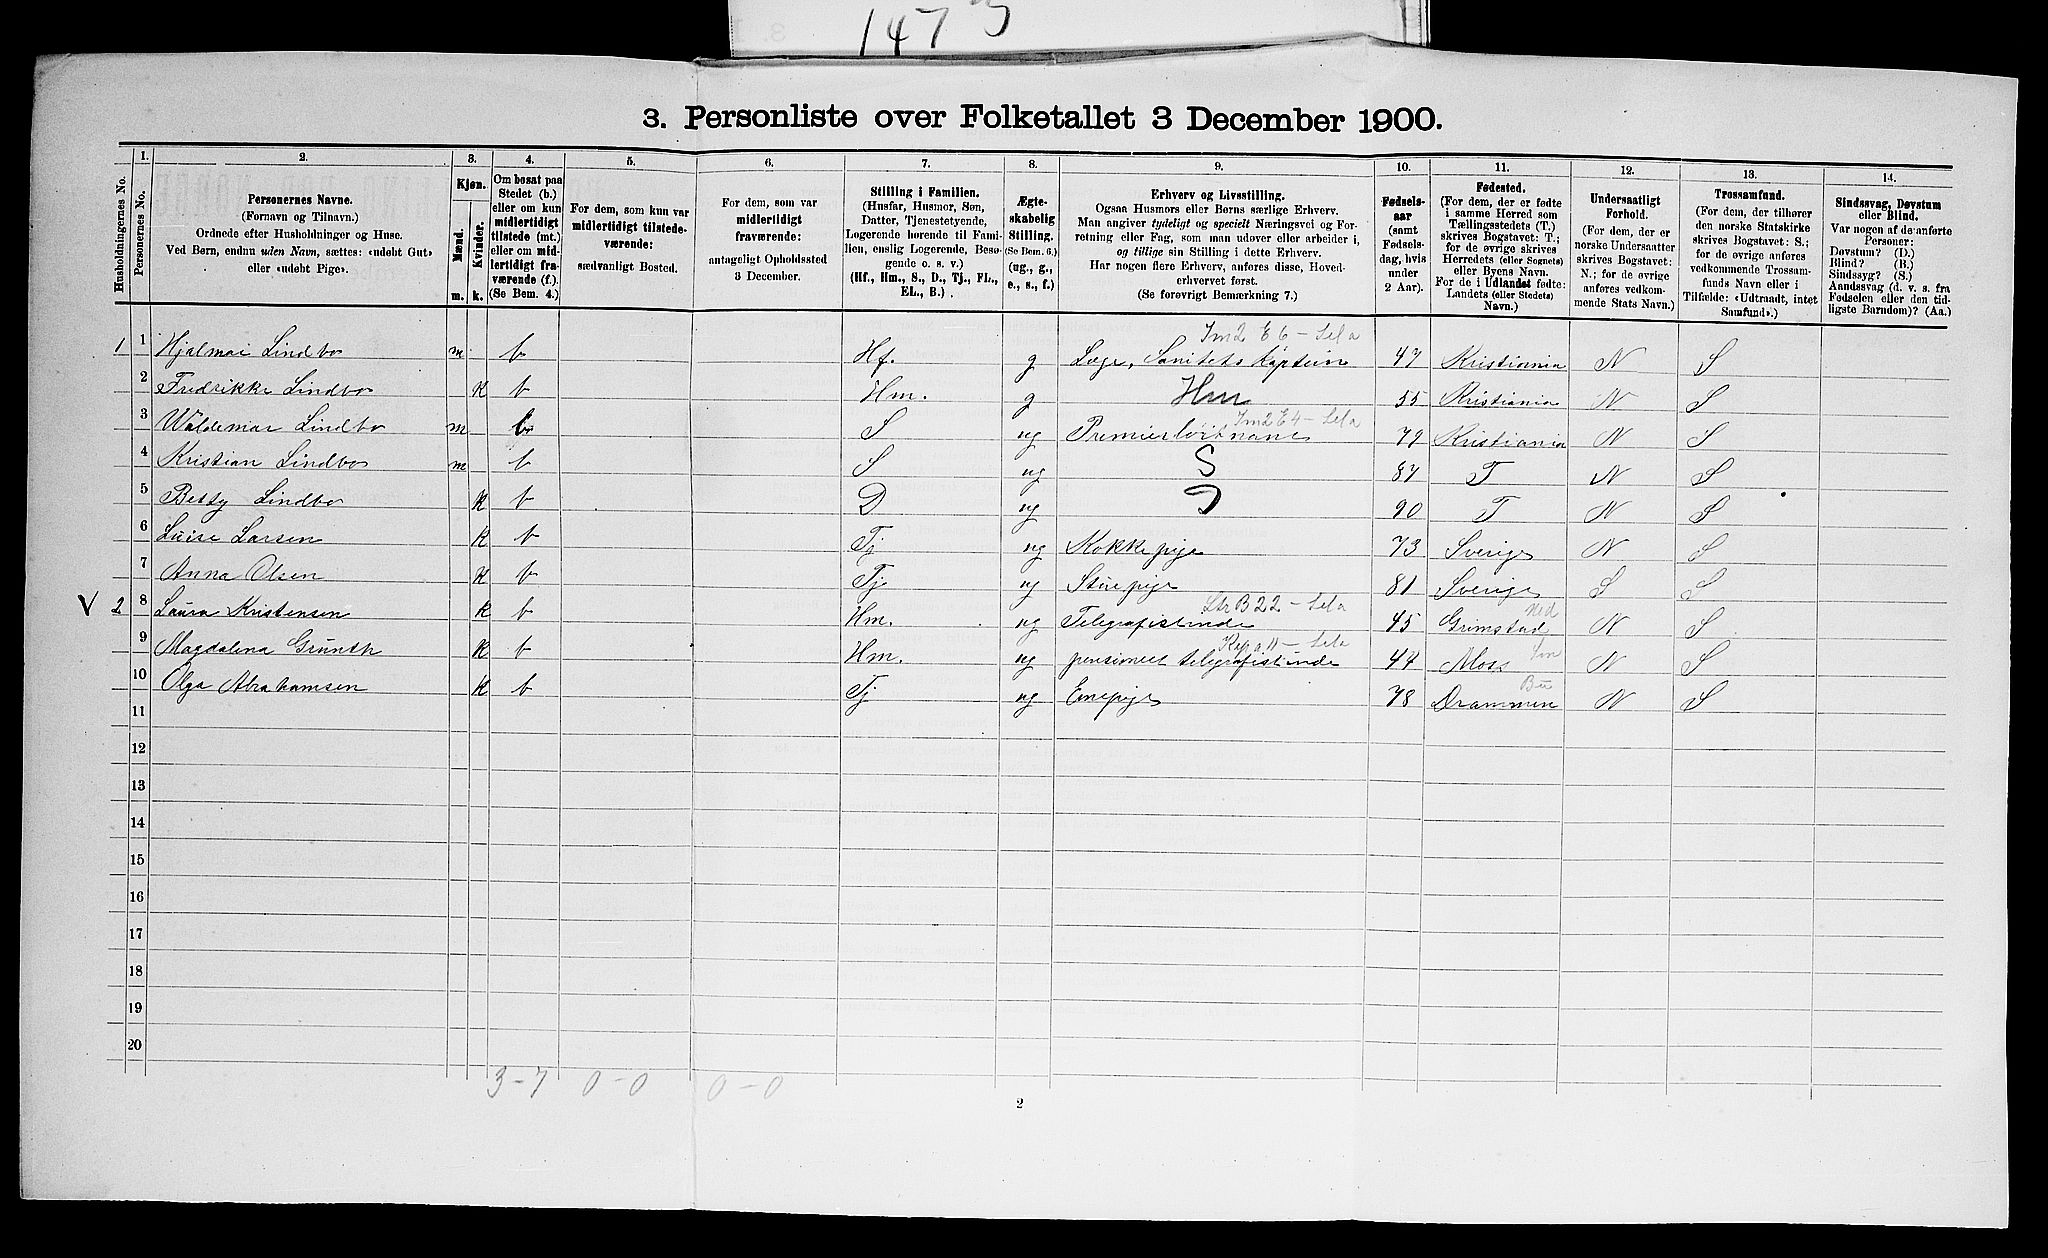 147
3. Personliste over Folketallet 3 December 1900.
Husholdningernes No.
1.
Personernes No.
2.
Personernes Navne.
(Fornavn og Tilnavn.)
Ordnede efter Husholdninger og Huse.
Ved Børn, endnu uden Navn, sættes: «udøbt Gut»
eller «udøbt Pige».
3.
Kjøn.
Mænd.
Kvinder.
m.
k.
4.
Om bosat paa
Stedet (b.)
eller om kun
midlertidigt
tilstede (mt.)
eller om mid-
lertidigt fra-
værende (f.).
(Se Bem. 4.)
5.
For dem, som kun var
midlertidigt tilstede-
værende:
sædvanligt Bosted.
6.
For dem, som var
midlertidigt
fraværende:
antageligt Opholdssted
3 December.
7.
Stilling i Familien.
(Husfar, Husmor, Søn,
Datter, Tjenestetyende,
Logerende hørende til Fami-
lien, enslig Logerende, Besø-
gende o. s. v.)
(Hf., Hm., S., D., Tj., FL.,
EL., B.).
8.
Ægte-
skabelig
Stilling.
(Se Bem. 6.)
(ug., g.,
e., s., f.)
9.
Erhverv og Livsstilling.
Ogsaa Husmors eller Børns særlige Erhverv.
Man angiver tydeligt og specielt Næringsvei og For-
retning eller Fag, som man udøver eller arbeider i,
og tillige sin Stilling i dette Erhverv.
Har nogen flere Erhverv, anføres disse, Hoved-
erhvervet først.
(Se forøvrigt Bemærkning 7.)
10.
Fødsels-
aar
(samt
Fødsels-
dag, hvis
under
2 Aar).
11.
Fødested.
(For dem, der er fødte
i samme Herred som
Tællingsstedets (T.)
skrives Bogstavet: T.;
for de øvrige skrives
Herredets (eller Sognets)
eller Byens Navn.
For de i Udlandet fødte:
Landets (eller Stedets)
Navn.)
12.
Undersaatligt
Forhold.
(For dem, der er
norske Undersaatter
skrives Bogstavet:
N.; for de øvrige
anføres vedkom-
mende Stats Navn.)
13.
Trossamfund.
(For dem, der tilhører
den norske Statskirke
skrives Bogstavet: S.;
for de øvrige anføres
vedkommende Trossam-
funds Navn eller i
Tilfælde: «Udtraadt, intet
Samfund».)
14.
Sindssvag, Døvstum
eller Blind.
Var nogen af de anførte
Personer:
Døvstum? (D.)
Blind? (B.)
Sindssyg? (S.)
Aandssvag (d. v. s. fra
Fødselen eller den tid-
ligste Barndom)? (Aa.)
Im2 E6 - Sela
1 1 Hjalmar Lindbo m b Hf. g Læge, Sanitets Kaptein 47 Kristiania N S
2 Fredrikke Lindbo K b Hm. g Hm 55 Kristiania N S
Im2 E4 - Sela
3 Waldemar Lindbo m b S ug Premierløitnant 79 Kristiania N S
4 Kristian Lindbo m b S ug S 87 T N S
5 Betsy Lindbo K b D ug D 90 T N S
6 Luise Larsen K b Tj ug Kokkepige 73 Sverige N S
7 Anna Olsen K b Tj ug Stuepige 81 Sverige S S
Str B 22 - Sela
V 2 8 Laura Kristensen K b Hm. ug Telegrafistinde 45 Grimstad Ned N S
9 Magdalena Grünth K b Hm. ug pensioneet telegrafistinde 44 Moss Sm N S
10 Olga Abrahamsen K b Tj ug Enepige 78 Drammen Bu N S
11
12
13
14
15
16
17
18
19
20
3-7 0-0 0-0
2